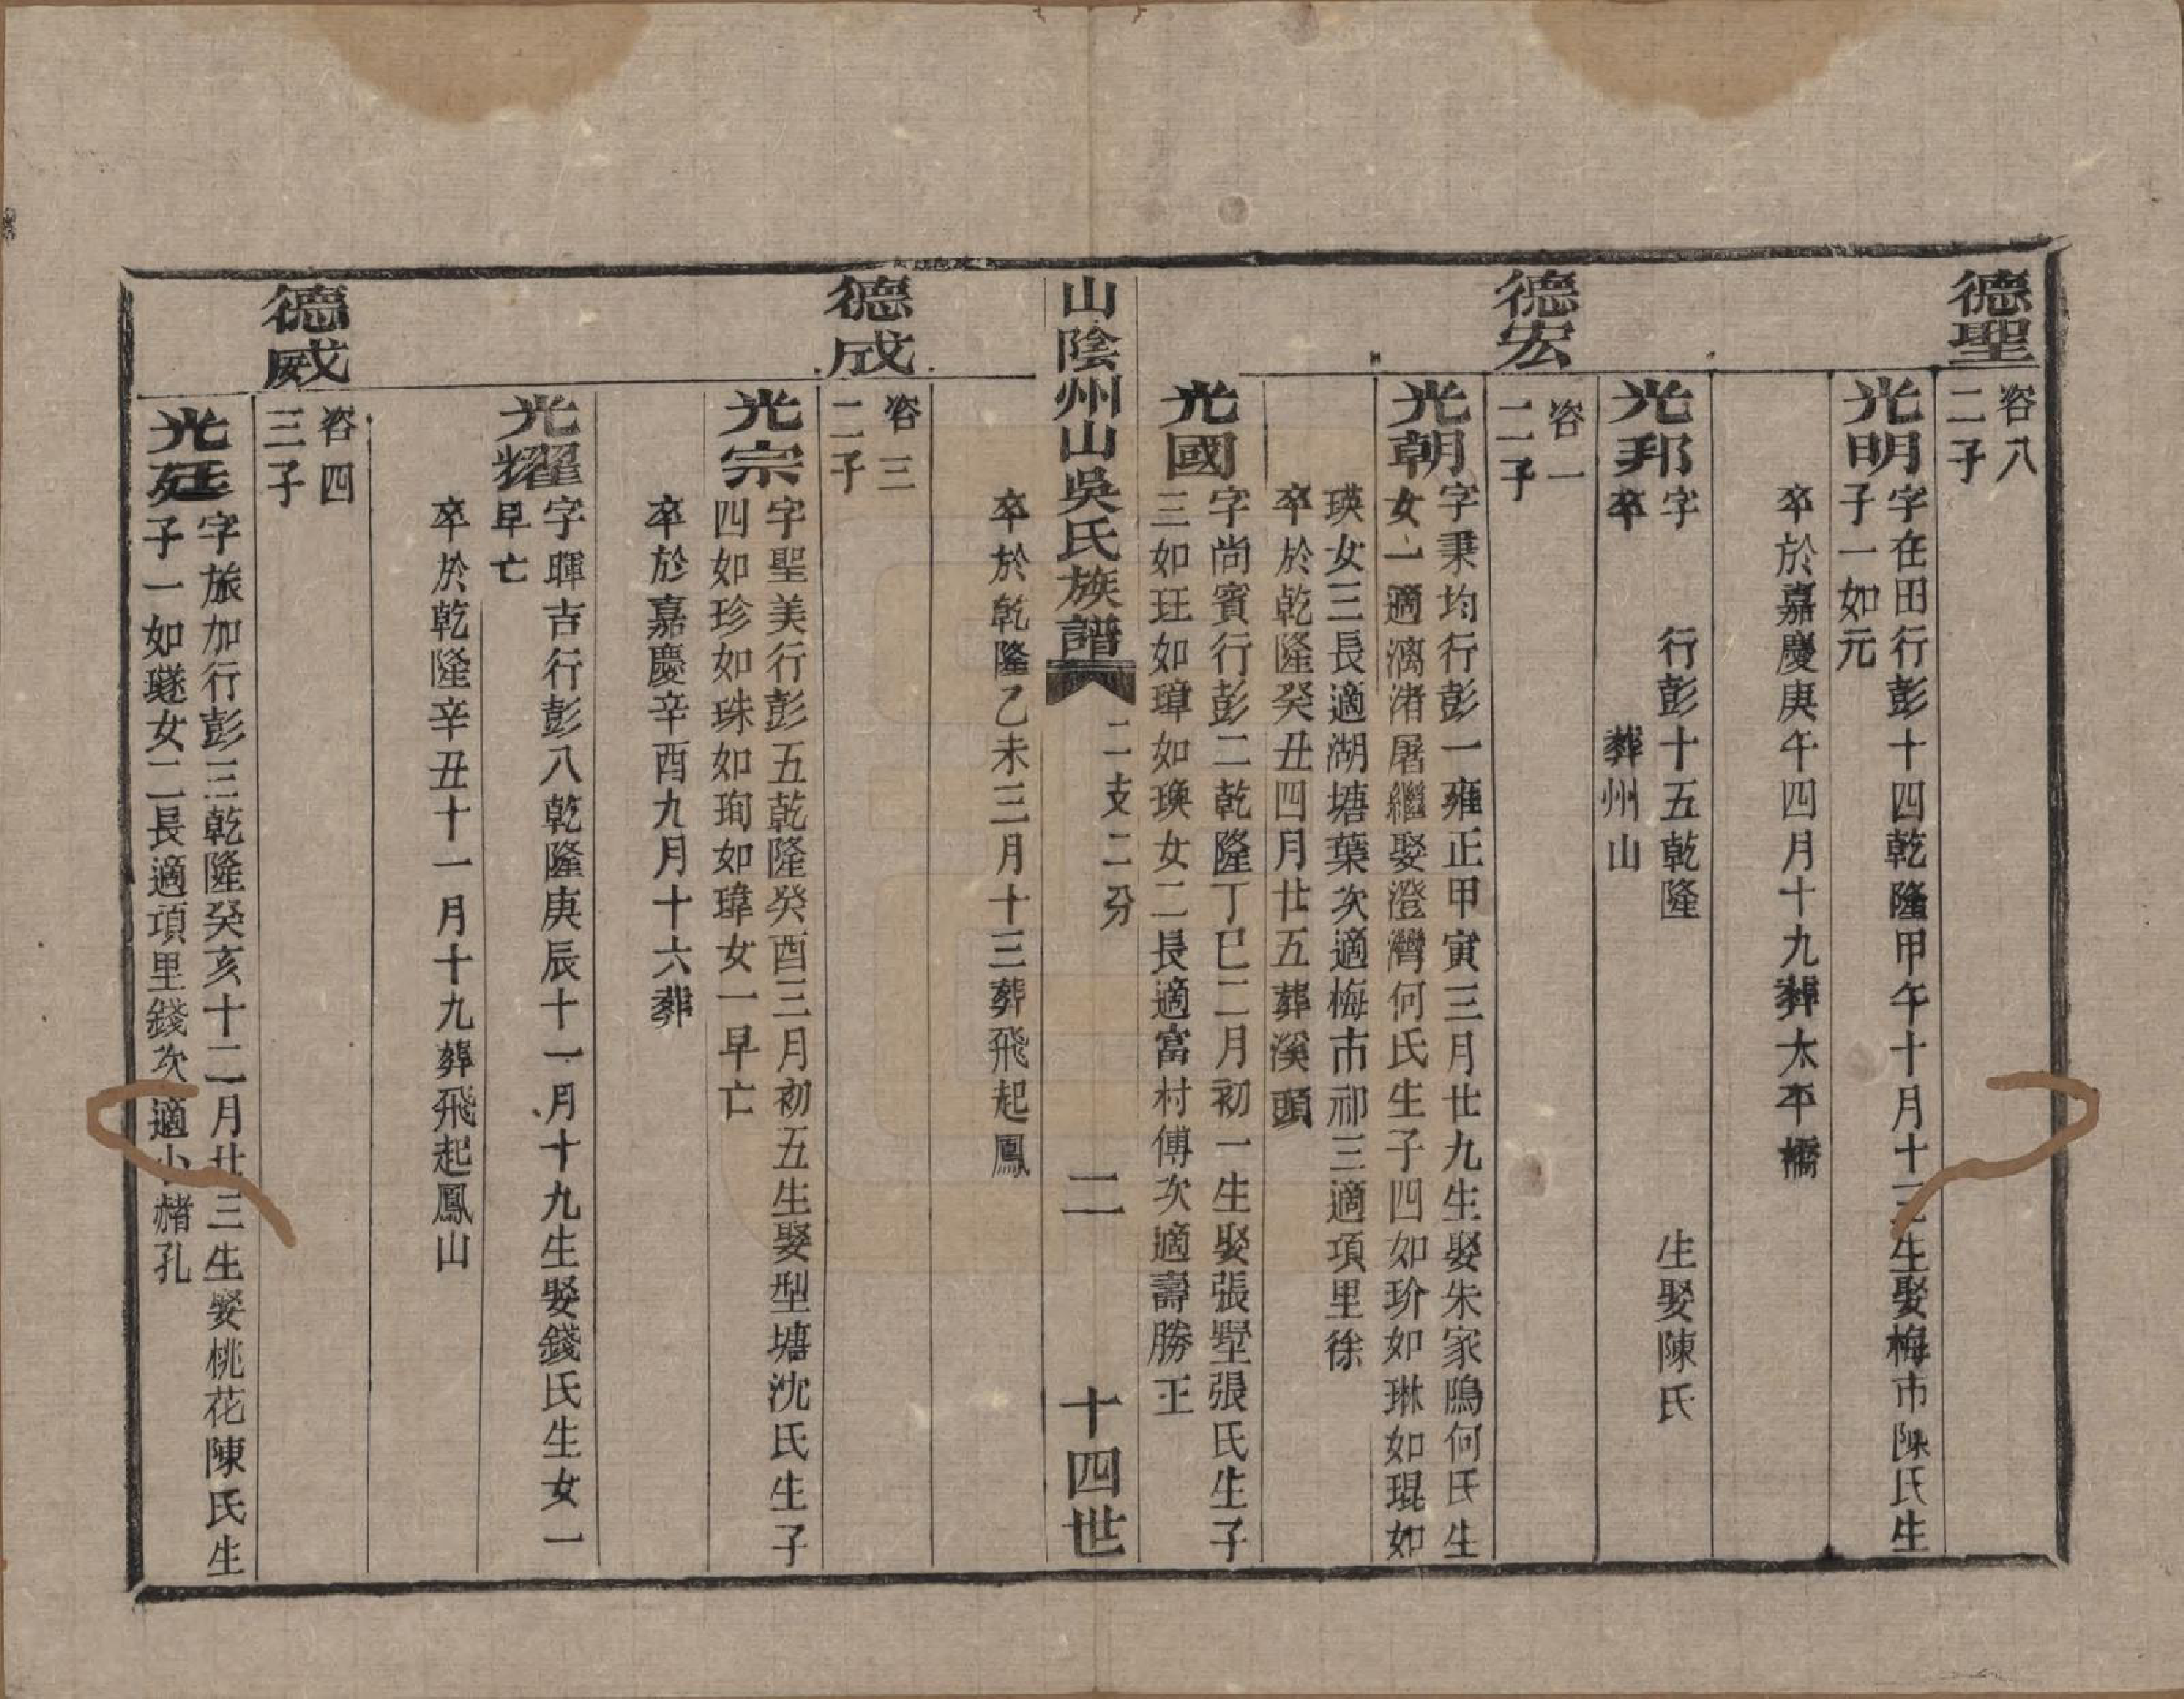 德聖
容八
二子
光明
字在田行彭十四乾隆甲午十月十三生娶梅市陳氏生
子一如元
卒於嘉慶庚午四月十九葬太平橋
光邦
字 行彭十五乾隆 生娶陳氏
卒 葬州山
德宏
容一
二子
光朝
字秉均行彭一雍正甲寅三月廿九生娶朱家隖何氏生
女一適漓渚屠繼娶澄灣何氏生子四如玠如琳如琨如
瑛女三長適湖塘葉次適梅市祁三適項里徐
卒於乾隆癸丑四月廿五葬溪頭
光國
字尚賓行彭二乾隆丁巳二月初一生娶張墅張氏生子
三如玨如璋如瑍女二長適富村傅次適壽勝王
山陰州山吳氏族譜
二支二分
二
十四世
卒於乾隆乙未三月十三葬飛起鳳
德成
容三
二子
光宗
字聖美行彭五乾隆癸酉三月初五生娶型塘沈氏生子
四如珍如珠如珣如瑋女一早亡
卒於嘉慶辛酉九月十六葬
光耀
字暉吉行彭八乾隆庚辰十一月十九生娶錢氏生女一
早亡
卒於乾隆辛丑十一月十九葬飛起鳳山
德威
容四
三子
光廷
字旅加行彭三乾隆癸亥十二月廿三生娶桃花陳氏生
子一如璲女二長適項里錢次適小赭孔